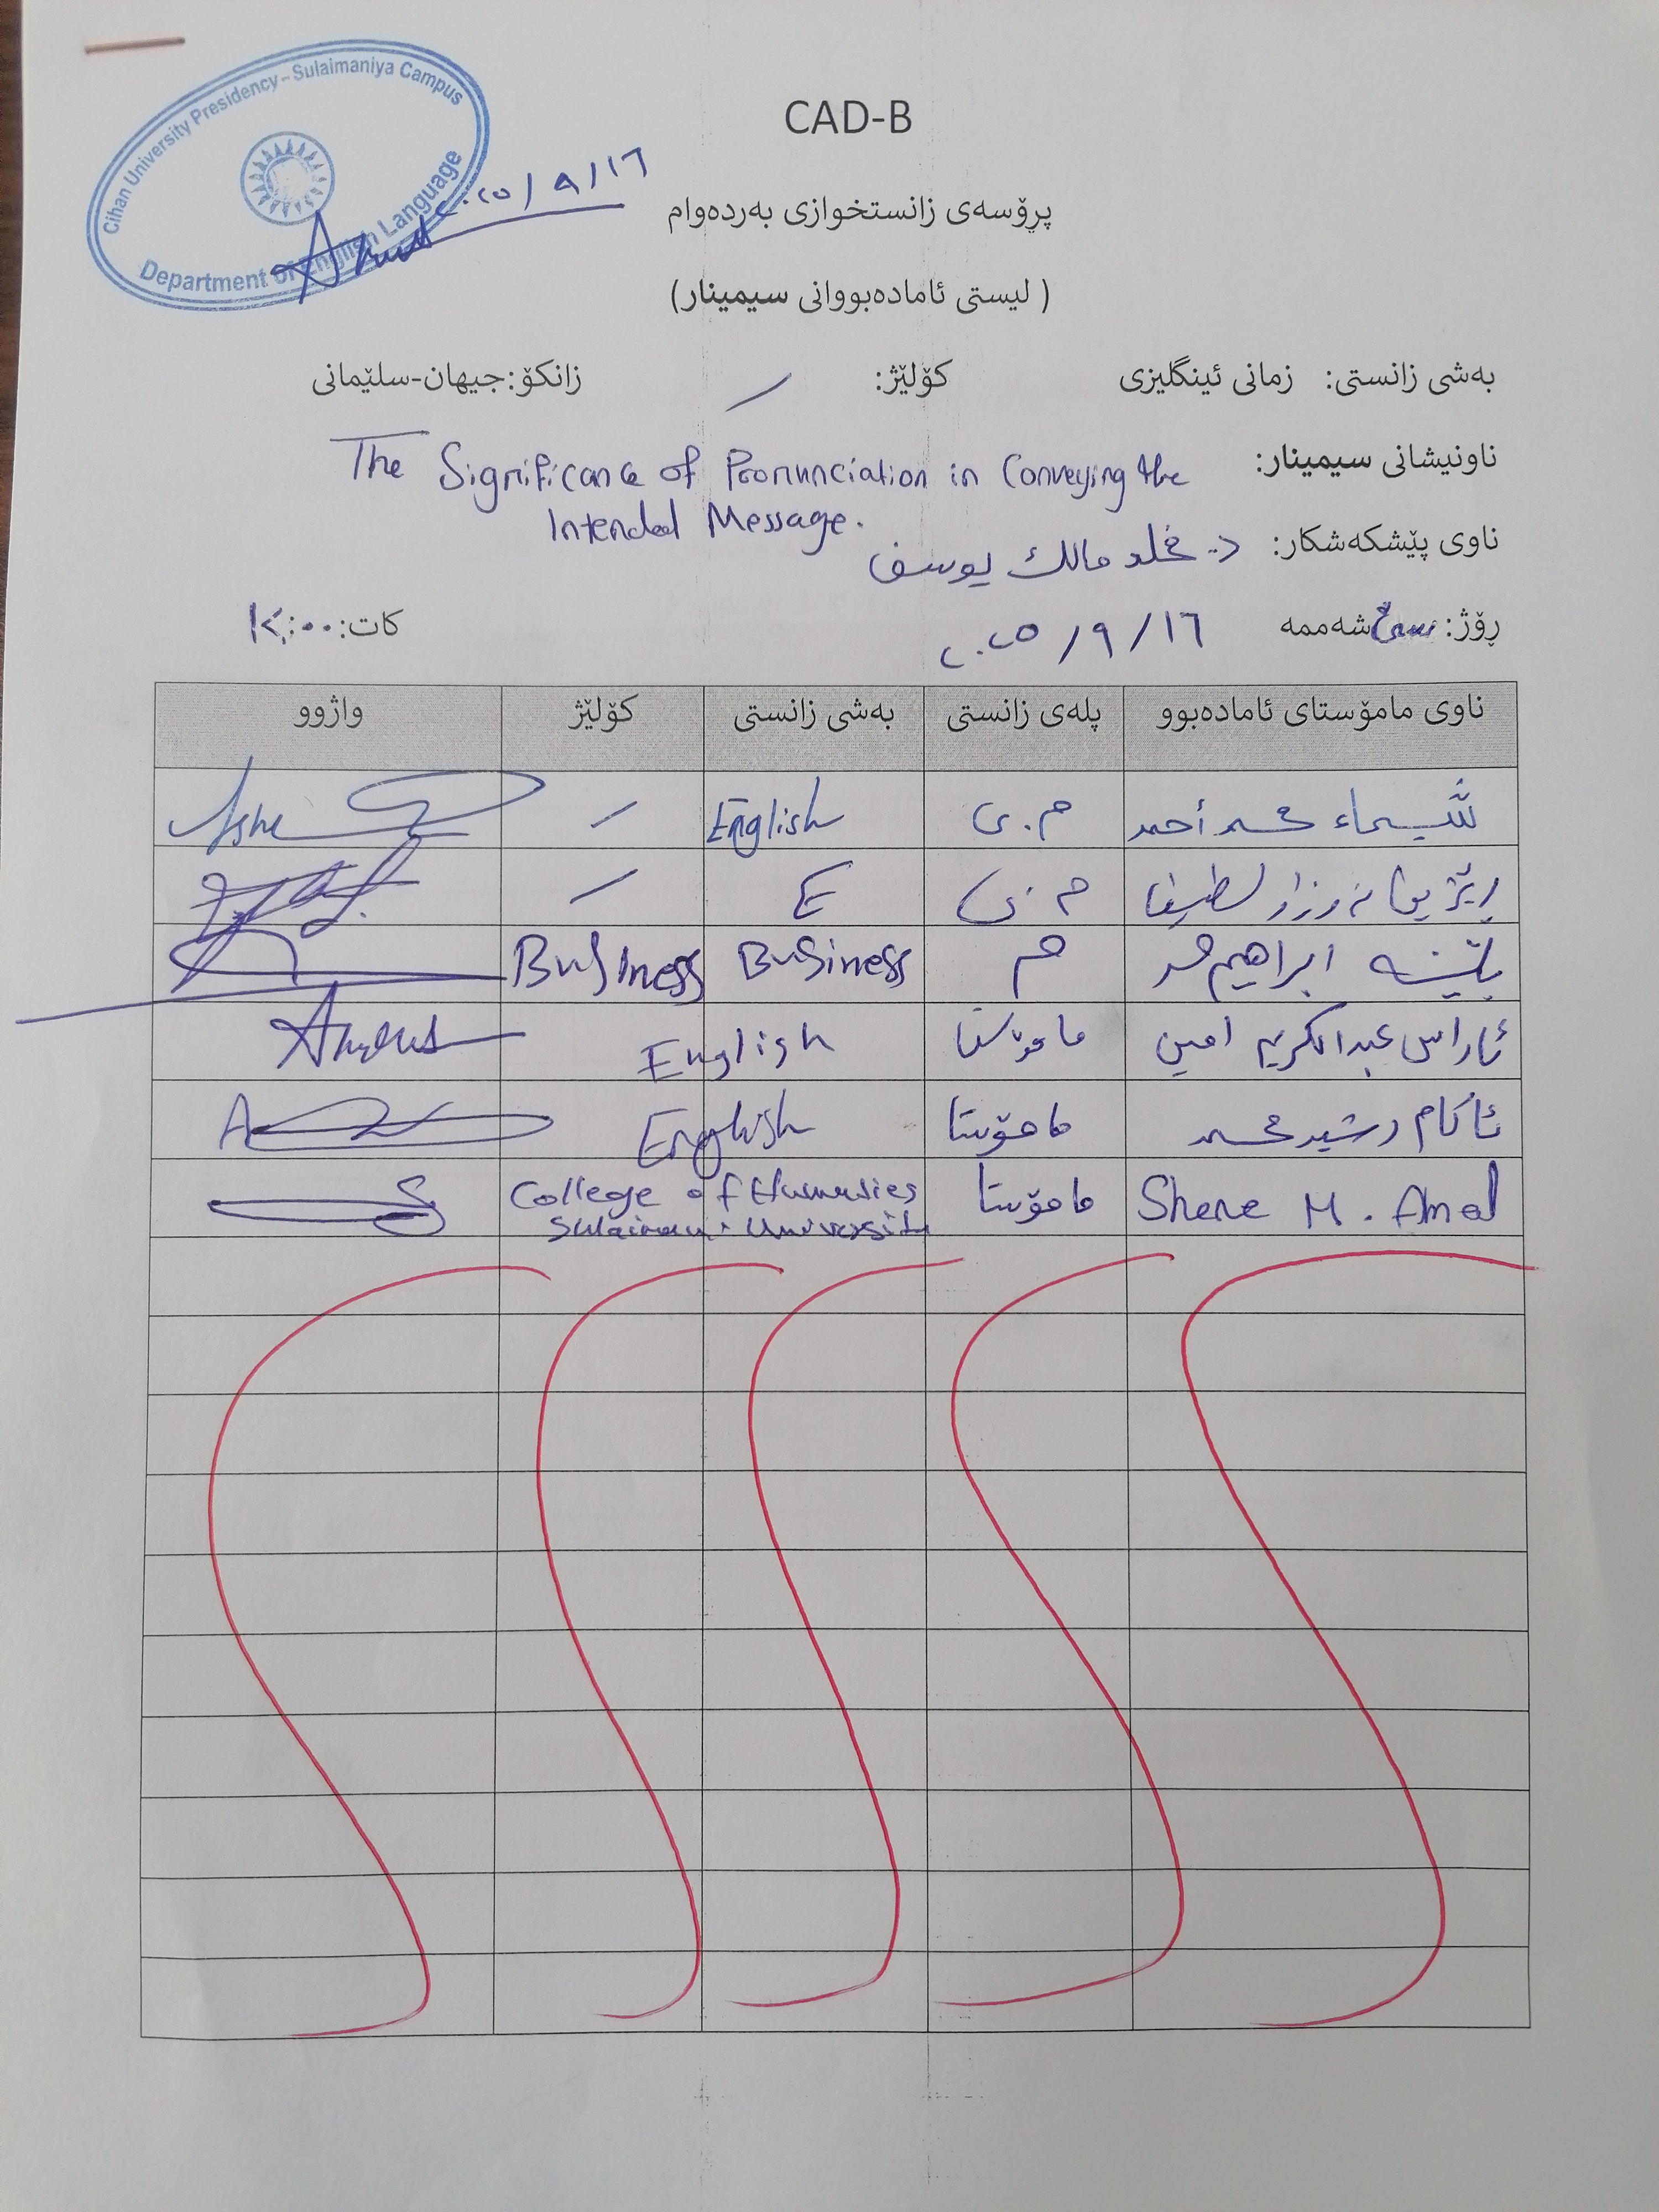 Cihan University Presidency - Sulaimaniya Campus
Department of English Language
٢٠٢٥/٩/١٦
CAD-B
پرۆسەی زانستخوازی بەردەوام
( لیستی ئامادەبووانی سیمینار)
بەشی زانستی: زمانی ئینگلیزی کۆلێژ: / زانکۆ:جیهان-سلێمانی
ناونیشانی سیمینار: The Significance of Pronunciation in Conveying the
Intended Message.
ناوی پێشکەشکار: د. مخلد مالك یوسف
ڕۆژ: سێ شەممە ٢٠٢٥/٩/١٦ کات: ١٢:٠٠
ناوی مامۆستای ئامادەبوو پلەی زانستی بەشی زانستی کۆلێژ واژوو
شيماء محمد أحمد م.ی English /
لطيف م.ی E /
ابراهيم محمد م Business Business
ئاراس عبدالكريم امين مامۆستا English
ئاكام رشيد محمد مامۆستا English
Shene M. مامۆستا College of Humanities
Sulaimani University